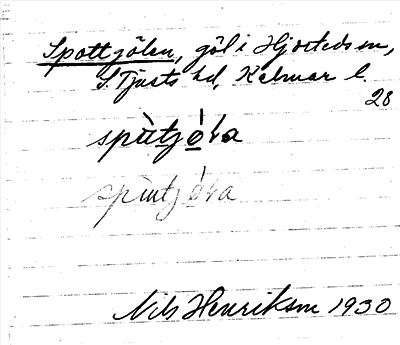 Spottgölen, göl i Hjorteds sn,
S. Tjusts hd, Kalmar l.
28
spùtjó̱la
spùtjó̱la
Nils Henriksson 1930